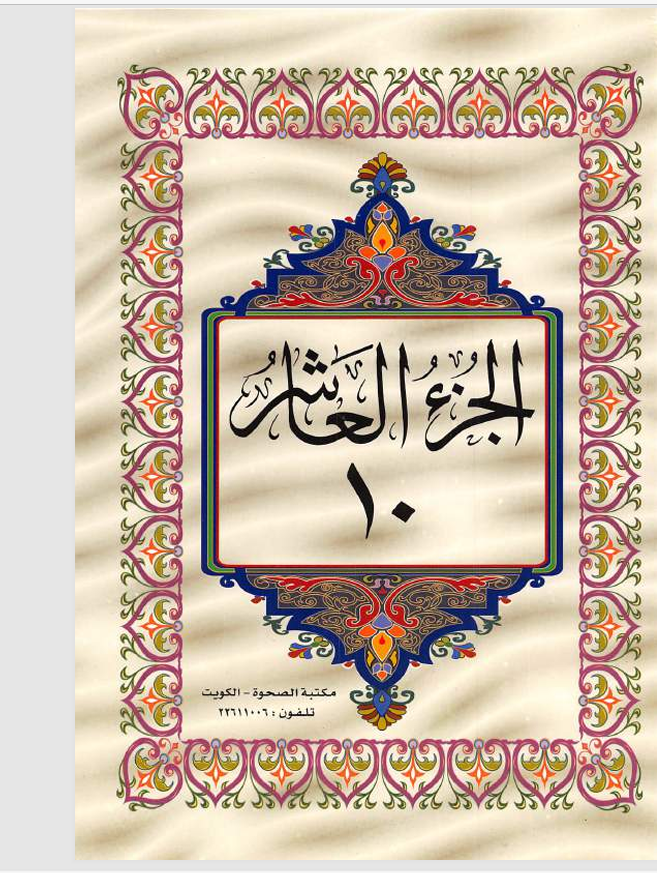 الجزءُ العَاشرُ
١٠
مكتبة الصحوة - الكويت
تلفون : ٢٢٦١١٠٠٦